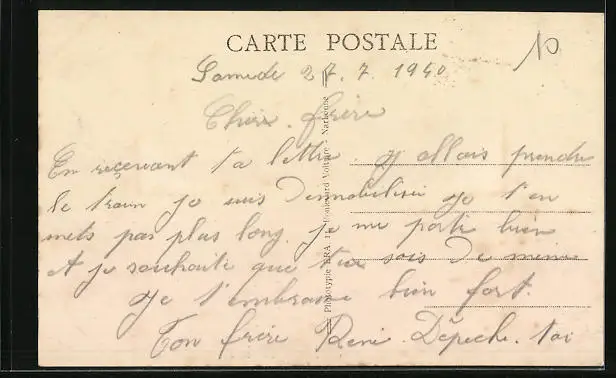 CARTE POSTALE
10
Samedi 27. 7. 1940
Cher frère
En reçevant ta lettre. j'allais prendre
le train je suis Demmobilisé je t'en
mets pas plus long. je me porte bien
et je souhaite que tu sois de même
Je t'embrasse bien fort.
Ton frère René. Dépeche. toi
Phototypie ERA 11, Boulevard Voltaire - Narbonne